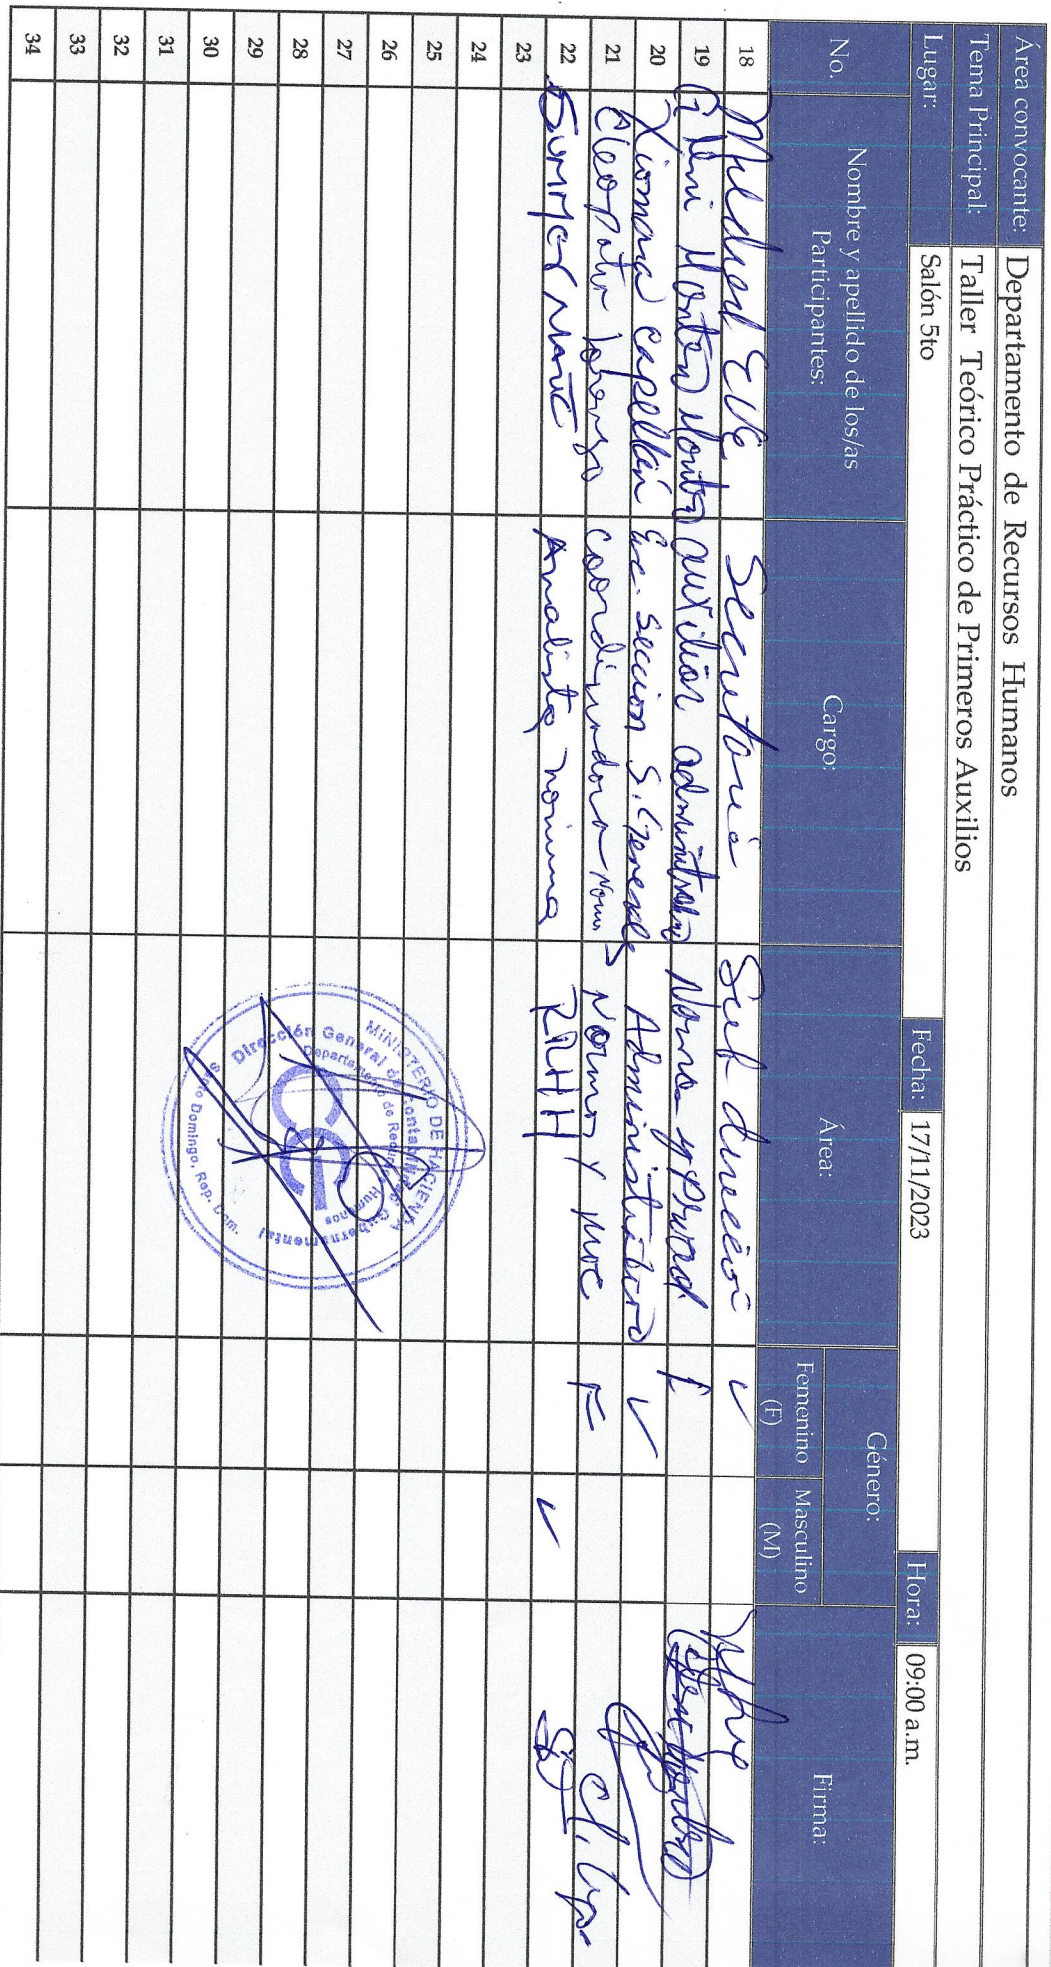 Área convocante: Departamento de Recursos Humanos
Tema Principal: Taller Teórico Práctico de Primeros Auxilios
Lugar: Salón 5to Fecha: 17/11/2023 Hora: 09:00 a.m.
No. Nombre y apellido de los/as Participantes: Cargo: Área: Género: Femenino (F) Masculino (M) Firma:
18 Mildred Secretaria Sub dirección ✓
19 Montero Montero auxiliar Norma y F
20 Xiomara Capellán Enc. Seccion S. Generales Administrativo ✓
21 Cleopatra Coordinadora Norma y proc F
22 Analista nomina RRHH ✓
23
24
25
26
27
28
29
30
31
32
33
34
MINISTERIO DE HACIENDA
Dirección General de Contabilidad Gubernamental
Departamento de Recursos Humanos
Santo Domingo, Rep. Dom.